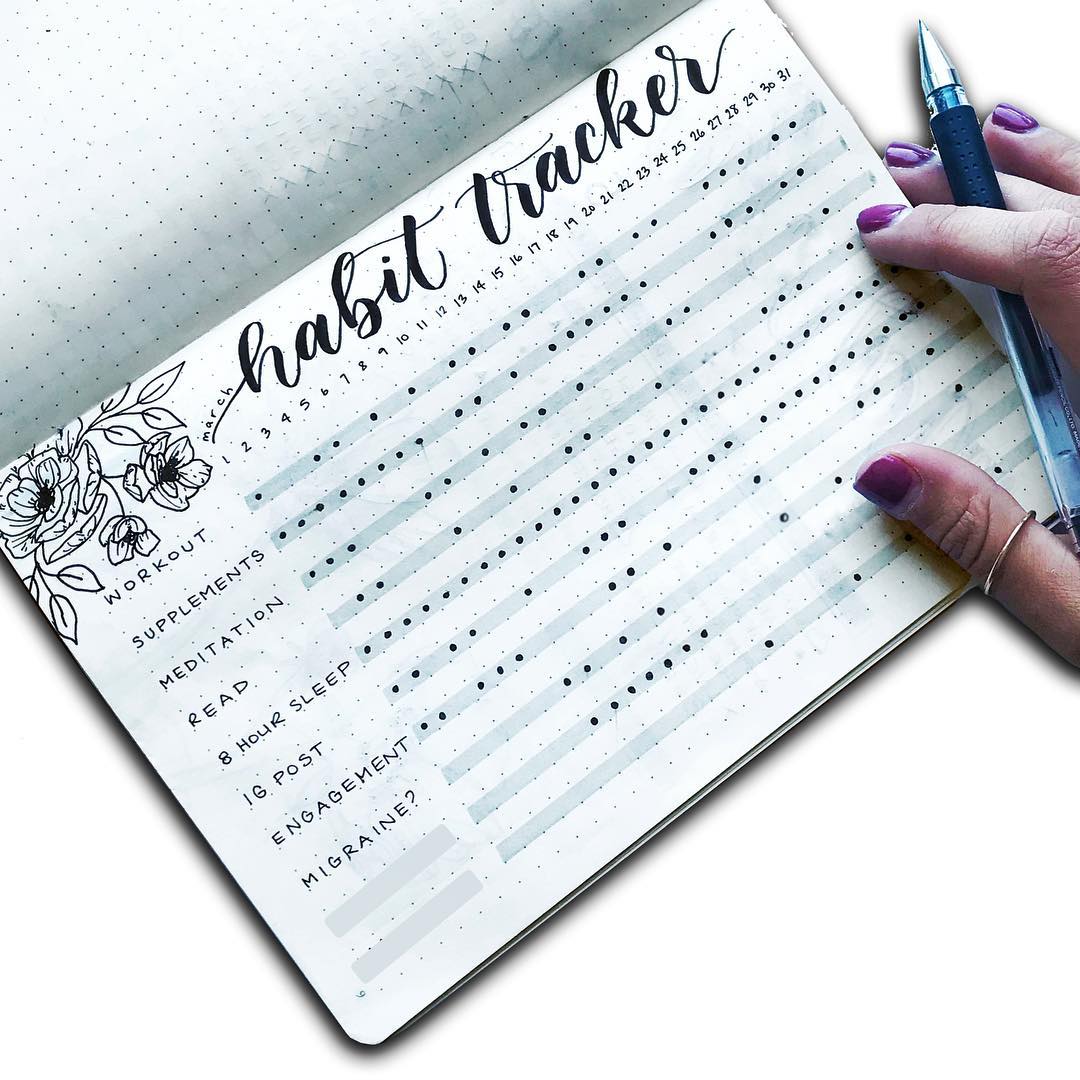 habit tracker
march
1 2 3 4 5 6 7 8 9 10 11 12 13 14 15 16 17 18 19 20 21 22 23 24 25 26 27 28 29 30 31
WORKOUT
SUPPLEMENTS
MEDITATION
READ
8 HOUR SLEEP
IG POST
ENGAGEMENT
MIGRAINE?
6